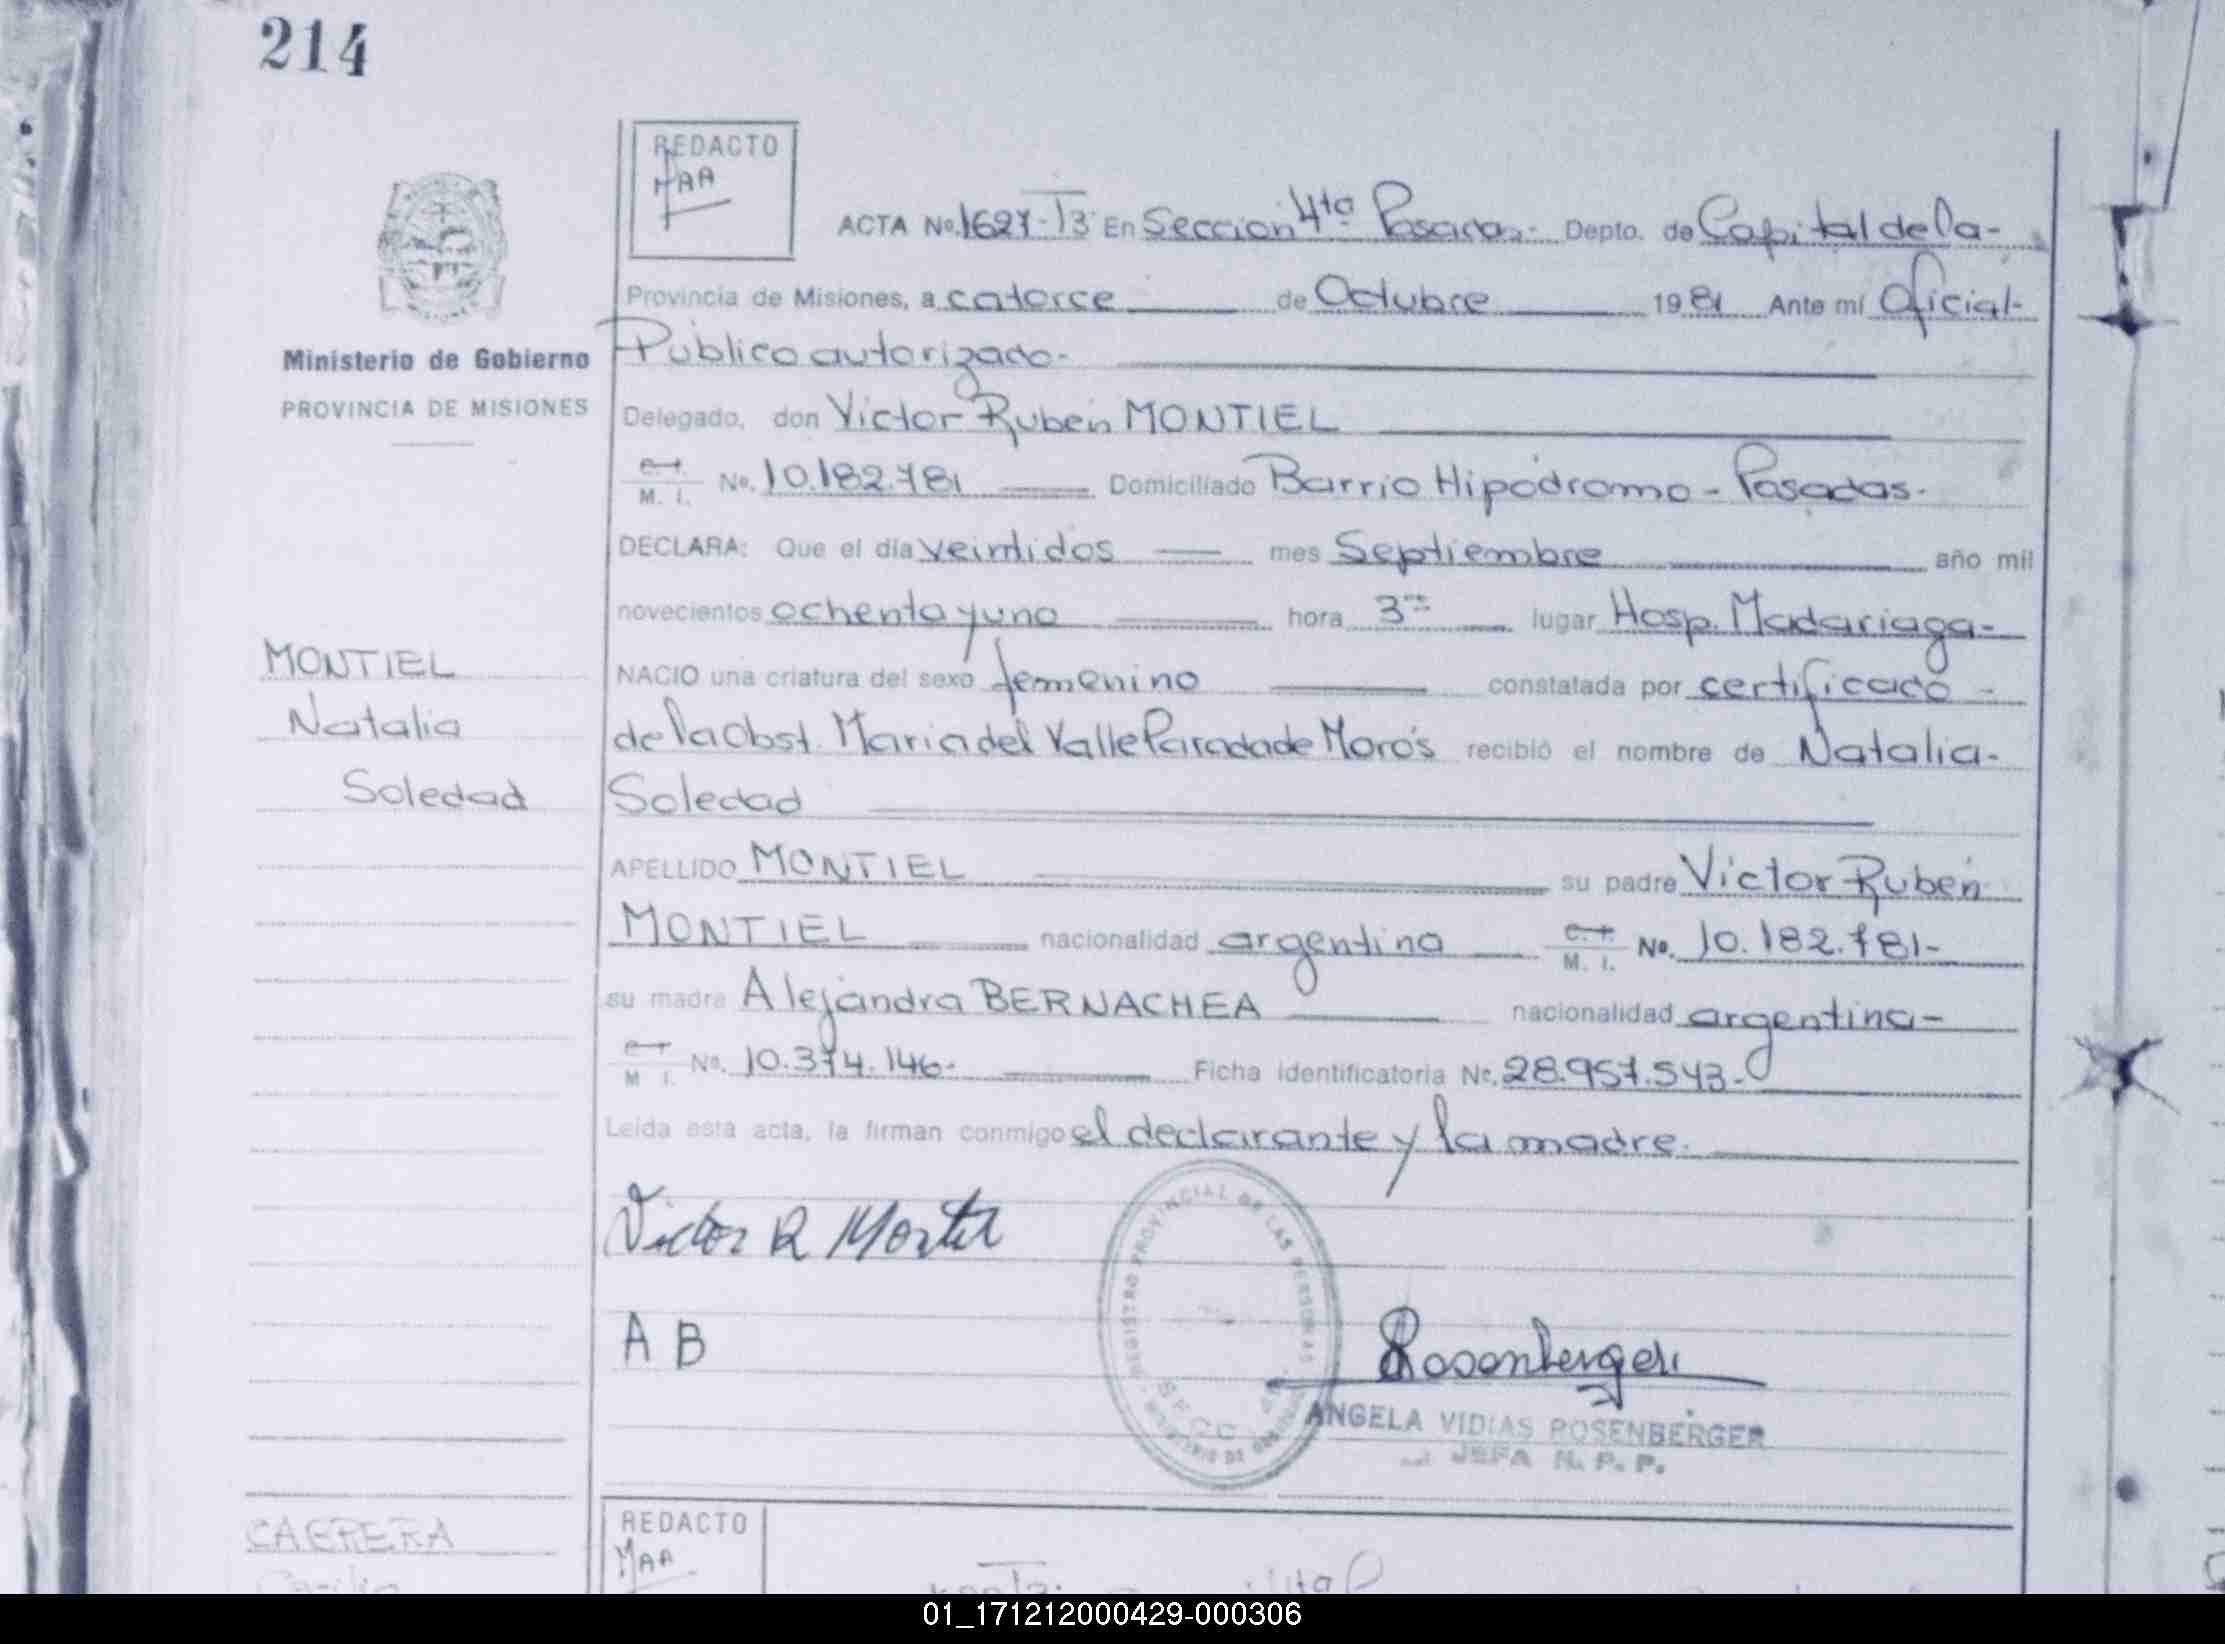 214
REDACTO
MAA
ACTA No. 1627-T3 En Sección 4ta Posadas.- Depto. de Capital de la-
Provincia de Misiones, a catorce de Octubre 1981 Ante mí Oficial-
Público autorizado-
Delegado, don Víctor Rubén MONTIEL
Ministerio de Gobierno
PROVINCIA DE MISIONES
M. I. No. 10.182.781 Domiciliado Barrio Hipódromo - Posadas.
DECLARA: Que el día veintidos mes Septiembre año mil
novecientos ochenta y uno hora 3 lugar Hosp. Madariaga-
MONTIEL
Natalia
Soledad
NACIO una criatura del sexo femenino constatada por certificado -
de la Obst. Maria del Valle Parada de Moro's recibió el nombre de Natalia-
Soledad
APELLIDO MONTIEL su padre Víctor Rubén
MONTIEL nacionalidad argentina C. I. M. I. No. 10.182.781-
su madre Alejandra BERNACHEA nacionalidad argentina-
M. I. No. 10.374.146- Ficha identificatoria No. 28.957.543-
Leída esta acta, la firman conmigo el declarante y la madre.
Victor R Montiel
A B
REGISTRO PROVINCIAL DE LAS PERSONAS
SECC
MINISTERIO DE GOBIERNO
Rosenberger
ANGELA VIDIAS ROSENBERGER
JEFA N. P. P.
CABRERA
REDACTO
MAA
01_171212000429-000306